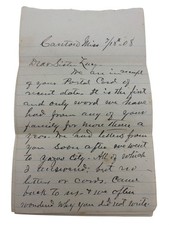 Canton Miss 7/18" 08
Dear Sister Lucy
We are in receipt
of your Postal Card of
recent date. It is the first
and only word we have
had from any of your
family for more than a
year. We had letters from
you soon after we went
to Yazoo City. All of which
I answered, but no
letters or cards came
back to us & we often
wondered why you did not write